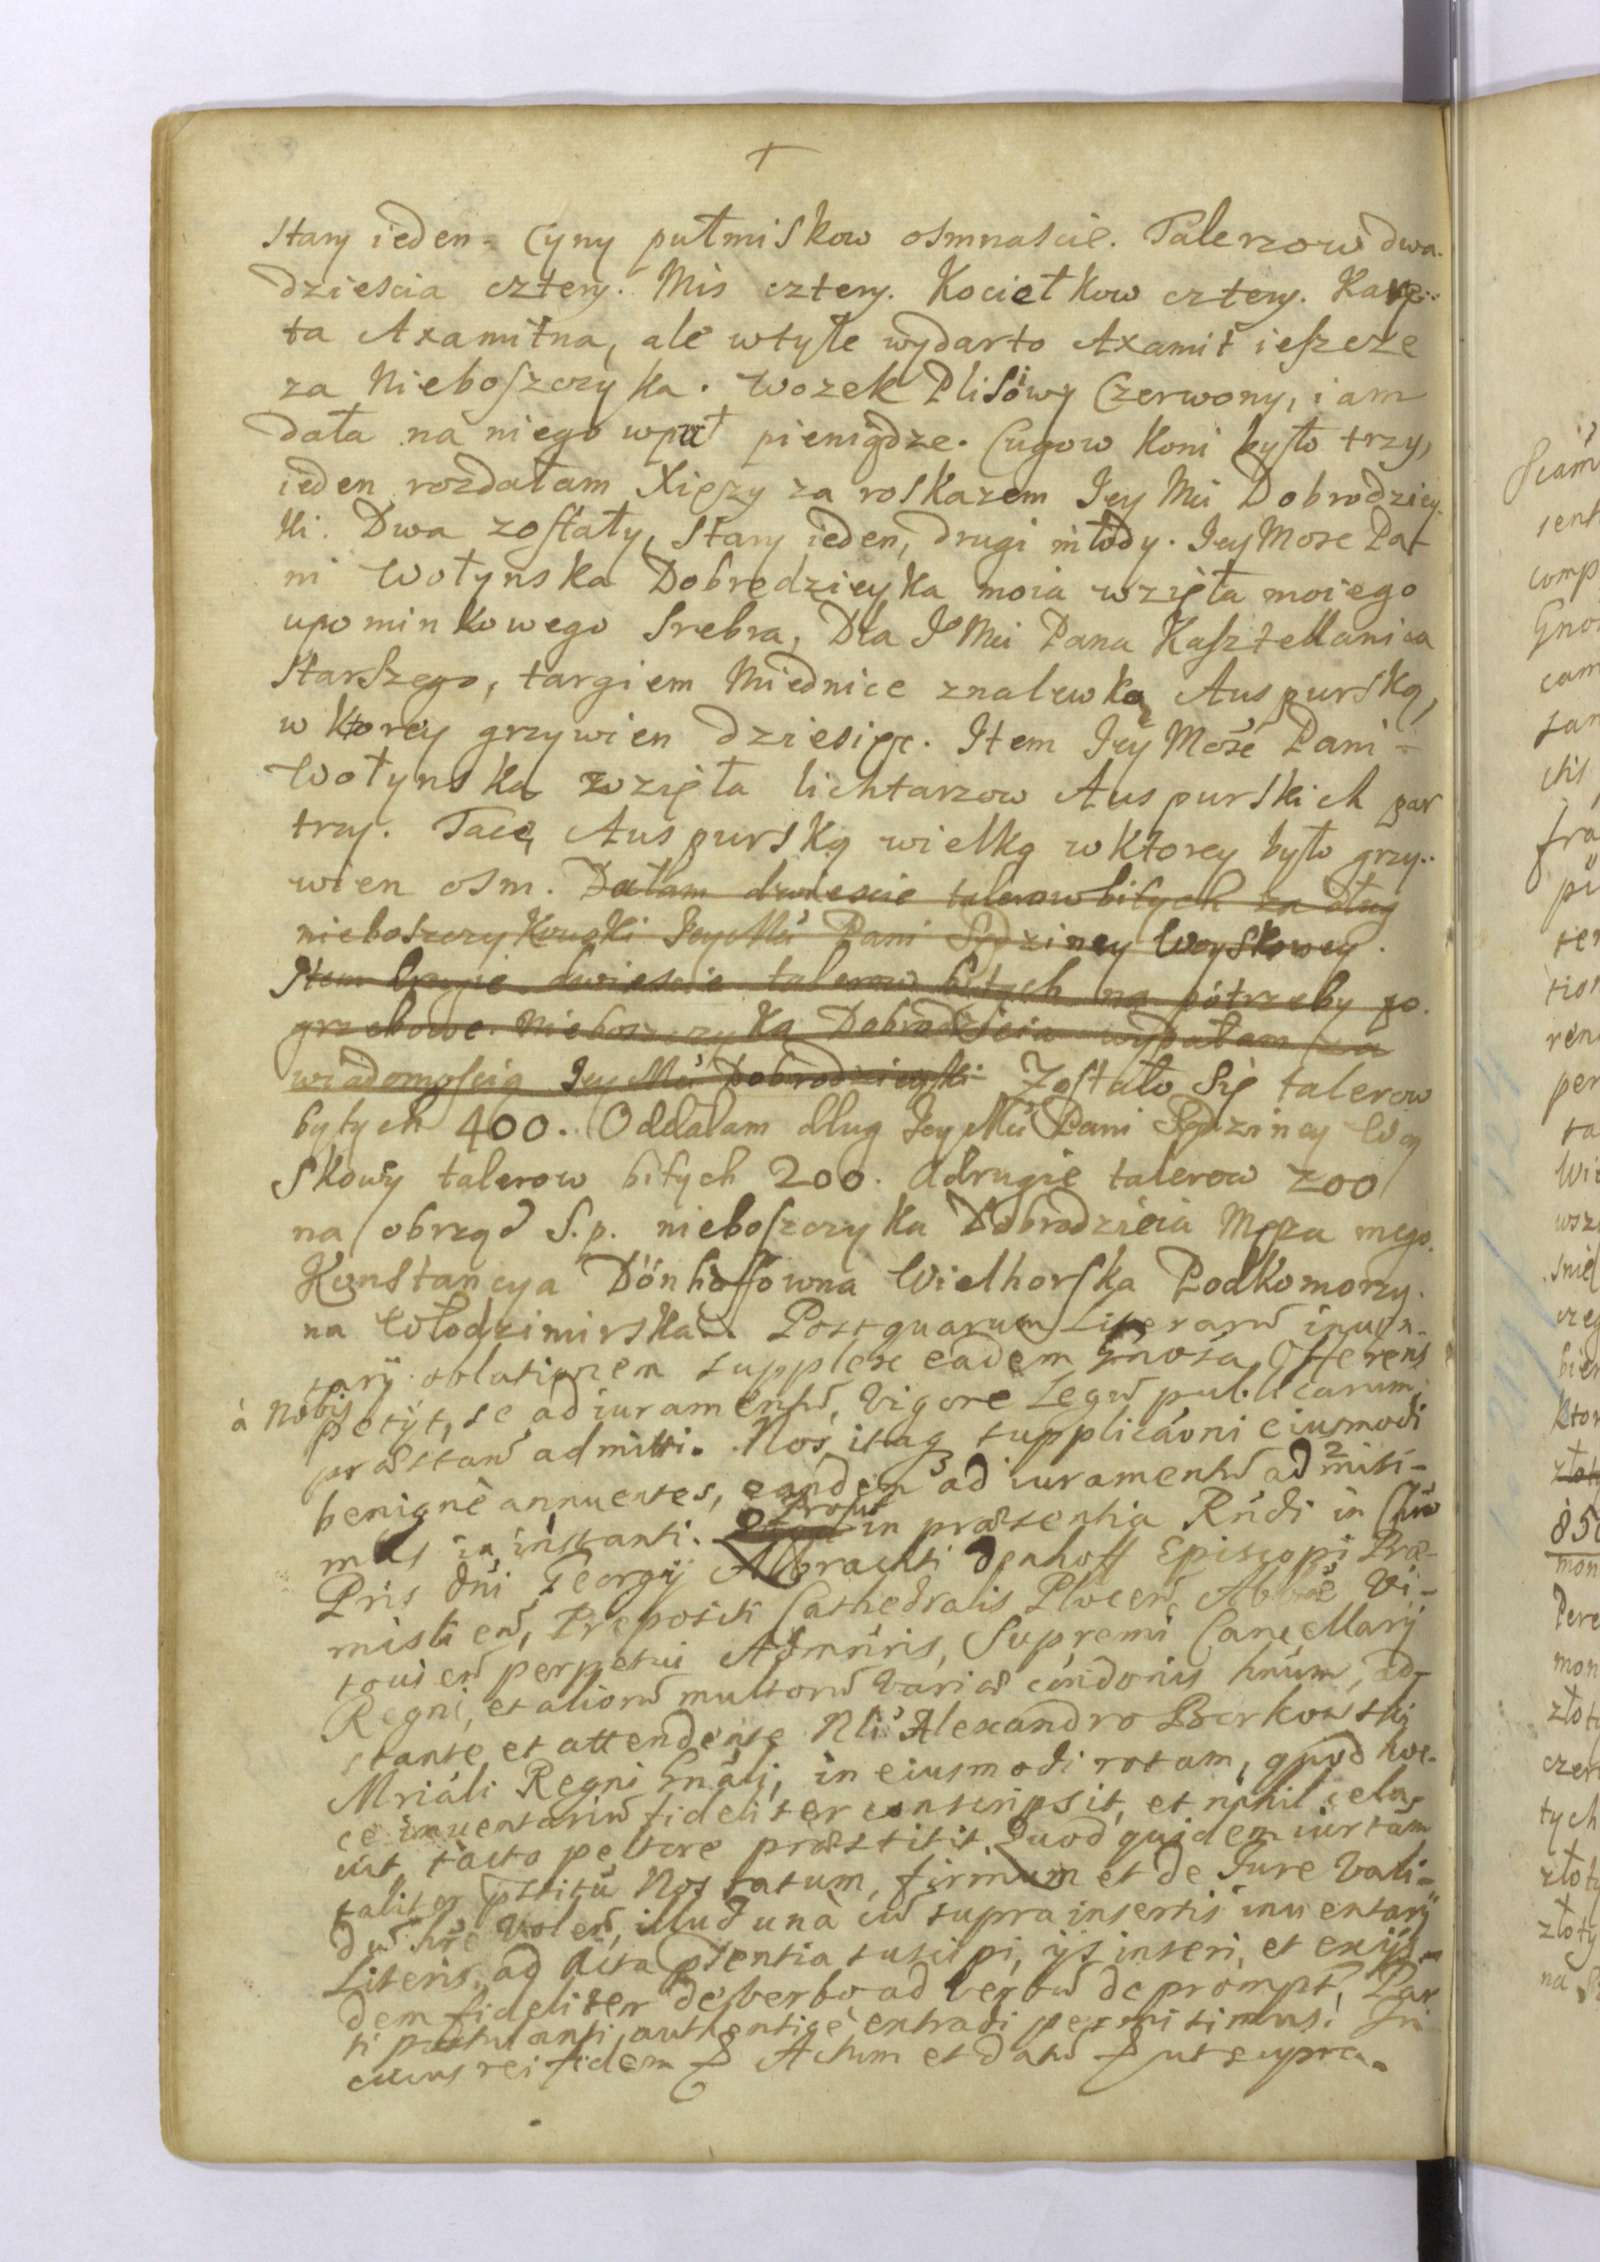 +
Stary ieden. Cyny pułmiskow osmnascie. Talerzow dwa-
dziescia cztery. Mis cztery. Kociełkow cztery. Karyi-
ta Axamitna, ale wtyle wydarto Axamit ieszcze
za Nieboszczyka. Wozek Plisowy Czerwony, iam
dała na niego wpuł pieniądze. Cugow koni było trzy,
ieden rozdałam Xięzy za roskazem Iey Mci Dobrodziey-
ki. Dwa zostały, Stary ieden, drugi młody. Iey Mosc Pa-
ni Wołynska Dobrodzieyka moia wzięła moiego
upominkowego Srebra, Dla Iº Mci Pana Kasztellanica
Starszego, targiem Miednice znalewką Auspurską,
w ktorey grzywien dziesięc. Item Iey Mość Pani
Wołynska wzięła lichtarzow Auspurskich par
trzy. Tacę Auspurską wielką w ktorey było grzy-
wien osm. Dałam dwiescie talerow bitych za dług
nieboszczykowski Iey Mci Pani Sędziney Woyskowey.
Item drugie dwiescie talerow bitych na potrzeby po-
grzebowe Nieboszczyka Dobrodzieia wydałam za
wiadomoscią Iey Mci Dobrodzieyki Zostało się talerow
bytych 400. Oddałam dług Iey Mci Pani Sędziney Woy
skowy talerow bitych 200. a drugie talerow 200
na obrząd S.p. nieboszczyka Dobrodzieia Męza mego.
Konstancya Dönhoffowna Wielhorska Podkomorzy-
na Włodzimirska. Postquarum Literarū inuen-
tarÿ oblationem supplex eadem Gnosa Offerens
à Nobis
petÿt, se ad iuramentū, vigore Legū publicarum,
præstanū admitti. Nos itaq3 supplicaoni eiusmodi
benignè annuentes, eandem ad iuramentū ad2misi-
mus in instanti. Prout in præsentia Rndi in Chro
Pris dni Georgÿ Albrachti Denhoff Episcopi Præ-
mislien, Præpositi Cathedralis Plocen, Abbæ Vi-
tovien perpetui Admnris, Supremi Cancellarÿ
Regni, et aliorū multorū variæ condonis hnum, ad-
stante et attendente Nli Alexandro Borkowski
Mriáli Regni Gnáli, in eiusmodi rotam, quod hoc-
ce inuentariū fideliter conscripsit, et nihil cela-
uit, tacto pectore præstitit. Quod quidem iurtam
taliter pstitū Nos ratum, firmum et de Iure vali-
dū hre volen, illud unà cū supra insertis inuentarÿ
Literis, ad Acta pſentia suscipi, ÿs inseri, et exÿs-
dem fideliter de verbo ad verbū deprompt, Par
ti postulanti, authenticè extradi permisimus. In
cuius rei fidem Actum et datū ut supra.